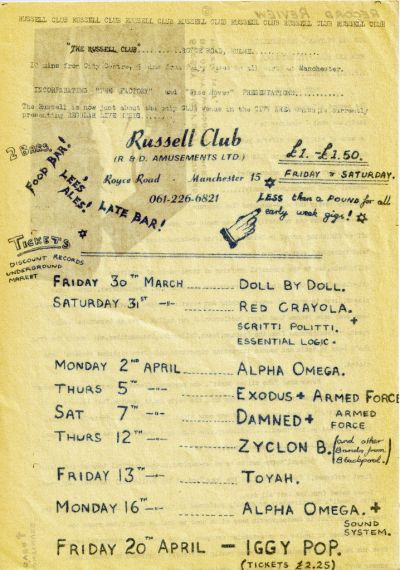 RUSSELL CLUB RUSSELL CLUB RUSSELL CLUB RUSSELL CLUB RUSSELL CLUB RUSSELL CLUB RUSSELL CLUB RUSSELL CLUB
RECORD REVIEW
"THE RUSSELL CLUB"..........ROYCE ROAD, HULME.
10 mins from City Centre, Manchester.
INCORPARATING "THE FACTORY" and PRESENTATIONS..........
The Russell is now just about the only CLUB venue in the CITY AREA currently
presenting REGULAR LIVE
Russell Club
(R & D. AMUSEMENTS LTD.)
Royce Road - Manchester 15
061-226-6821
2 BARS.
FOOD BAR!
LEES' ALES!
LATE BAR!
£1.-£1.50.
FRIDAY & SATURDAY.
LESS than a POUND for all
early week gigs!
TICKETS
DISCOUNT RECORDS
UNDERGROUND
MARKET
FRIDAY 30TH MARCH ........ DOLL BY DOLL.
SATURDAY 31ST -"- ........ RED CRAYOLA. +
SCRITTI POLITTI.
ESSENTIAL LOGIC.
MONDAY 2ND APRIL ........ ALPHA OMEGA.
THURS 5TH -"- ........ EXODUS + ARMED FORCE
SAT 7TH -"- ........ DAMNED + ARMED
FORCE
THURS 12TH -"- ........ ZYCLON B. (and other
Bands from
Blackpool.)
FRIDAY 13TH -"- ........ TOYAH.
MONDAY 16TH -"- ........ ALPHA OMEGA. +
SOUND
SYSTEM.
FRIDAY 20TH APRIL - IGGY POP.
(TICKETS £2.25)